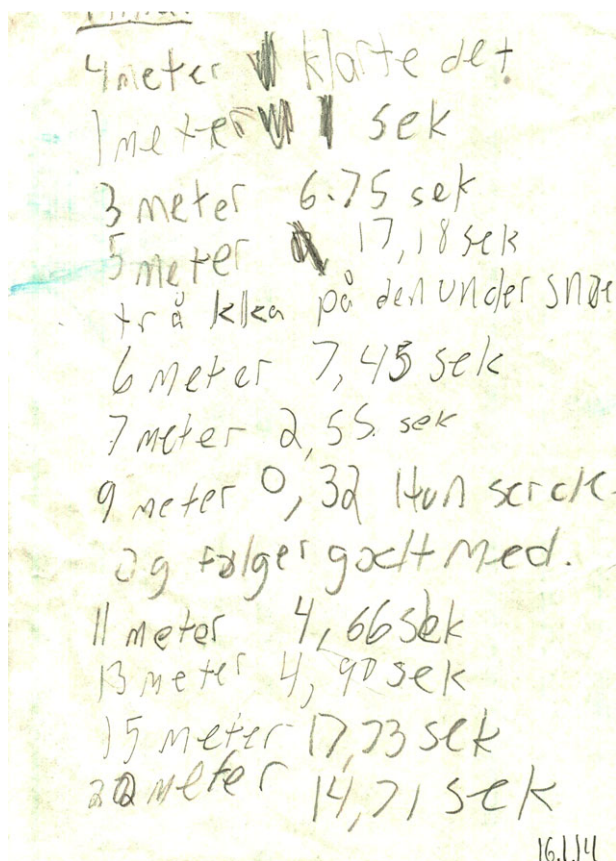 4 meter klarte det
1 meter 1 sek
3 meter 6.75 sek
5 meter 17,18 sek
trå kka på den under snøe
6 meter 7,45 sek
7 meter 2,55. sek
9 meter 0,32 Hun
og følger godt med.
11 meter 4,66 sek
13 meter 4,90 sek
15 meter 17,73 sek
meter 14,71 sek
16.1.14